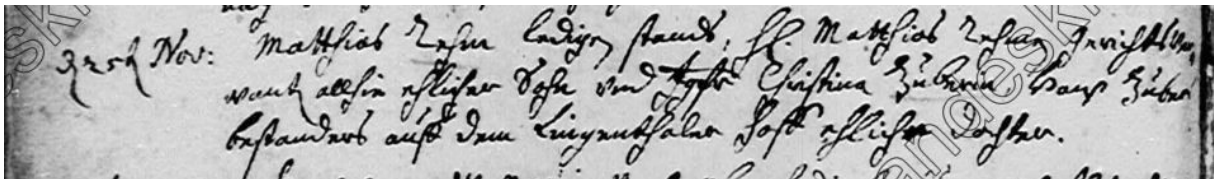 Nov: Matthias Zehm ledigen stands, H. Matthias Zehmen Gerichts Ver-
wanth allhie ehlicher Sohn vnd Jgfr Christina Huberin, Hanß Huber
bestanders auff dem Lingenthaler Hoff ehliche dochter.